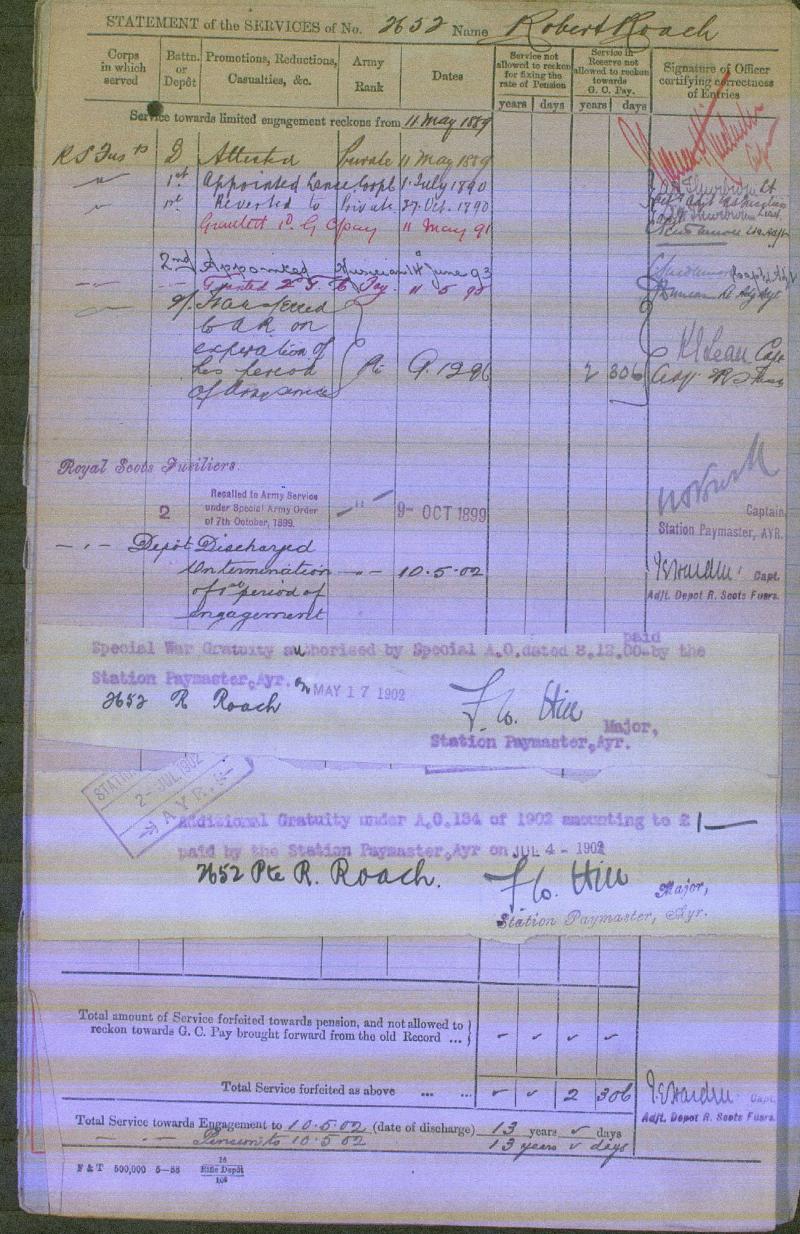 STATEMENT of the SERVICES of No. 2652 Name Robert Roach
Corps in which served
Battn. or Depôt
Promotions, Reductions, Casualties, &c.
Army Rank
Dates
Service not allowed to reckon for fixing the rate of Pension
years days
Service in Reserve not allowed to reckon towards G. C. Pay
years days
Signature of Officer certifying correctness of Entries
Service towards limited engagement reckons from 11 May 1889
R S Fus rs D Attested Private 11 May 1889
" 1st Appointed Lance Corpl 1 July 1890
" 1st Reverted to Private 27. Oct. 1890
Granted 1d G C pay 11 May 91
2nd Appointed 14 June 93
Granted 2d G C Pay 11 5 95
Transferred
to A R on
expiration of
his period
of Army service
Pte 9. 12 96 2 306
Capt
Adj. R S Fus
Royal Scots Fusiliers.
2 Recalled to Army Service
under Special Army Order
of 7th October, 1899.
" 9- OCT 1899
Captain,
Station Paymaster, AYR.
- " - Depôt Discharged
On termination - " - 10.5.02
of 1st period of
engagement
J S Hardin Capt.
Adjt. Depot R. Scots Fusrs.
Special War Gratuity authorised by Special A.O. dated 8.12.00 paid by the
Station Paymaster, Ayr. on MAY 17 1902
2652 R Roach
F. C. Hill Major,
Station Paymaster, Ayr.
STATION
2- JUL 1902
AYR
Additional Gratuity under A.O.134 of 1902 amounting to £ 1 —
paid by the Station Paymaster, Ayr on JUL 4 - 1902
2652 Pte R. Roach.
F. C. Hill Major,
Station Paymaster, Ayr.
Total amount of Service forfeited towards pension, and not allowed to
reckon towards G. C. Pay brought forward from the old Record ...
Total Service forfeited as above ... ... 2 306
J S Hardin Capt.
Adjt. Depot R. Scots Fusrs.
Total Service towards Engagement to 10.5.02 (date of discharge) 13 years days
- " - Pension to 10.5.02 13 years days
F & T 500,000 5-88 16
Rifle Depôt
108